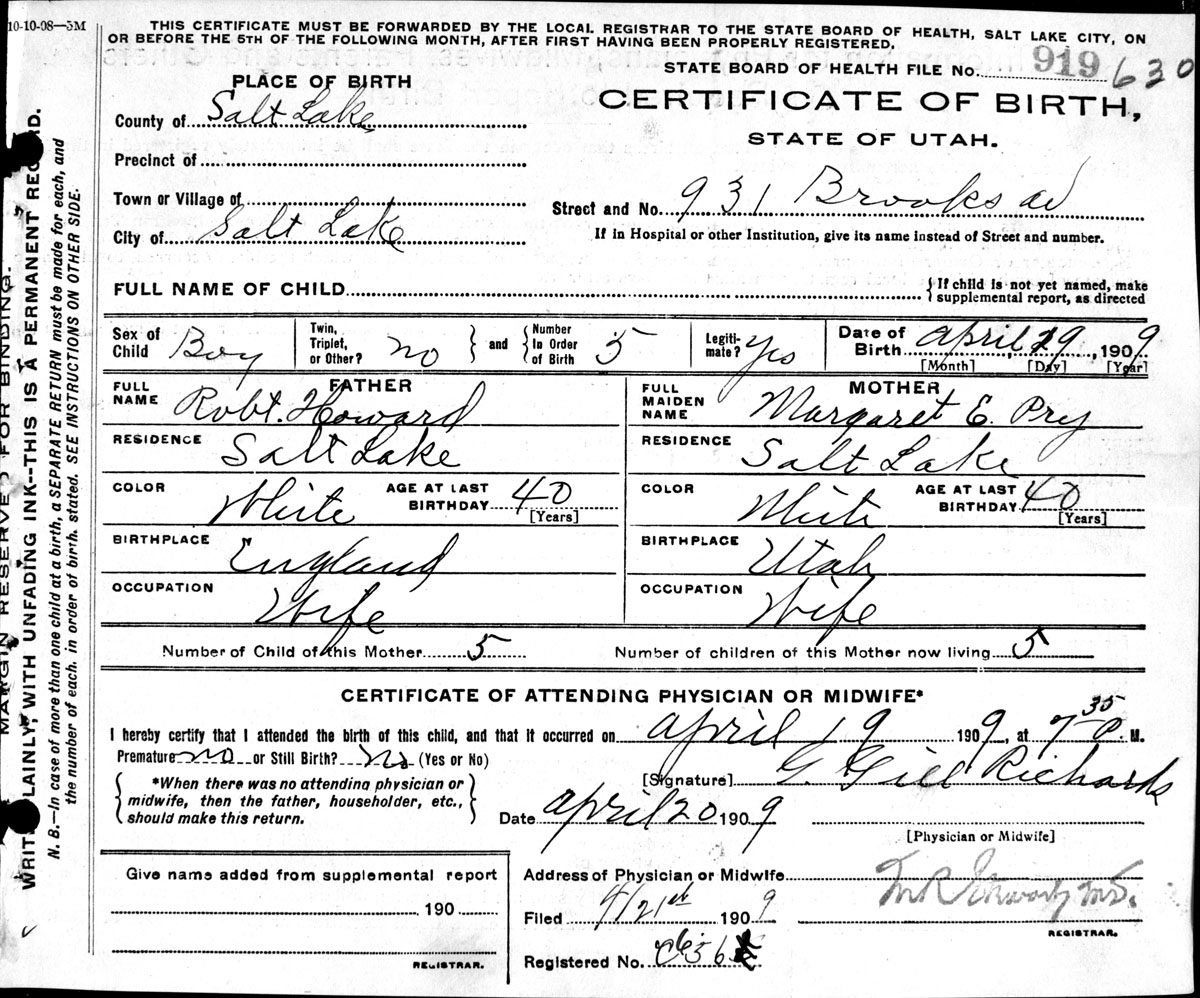 10-10-08—3M
THIS CERTIFICATE MUST BE FORWARDED BY THE LOCAL REGISTRAR TO THE STATE BOARD OF HEALTH, SALT LAKE CITY, ON
OR BEFORE THE 5TH OF THE FOLLOWING MONTH, AFTER FIRST HAVING BEEN PROPERLY REGISTERED.
STATE BOARD OF HEALTH FILE No. 919 630
PLACE OF BIRTH
CERTIFICATE OF BIRTH,
STATE OF UTAH.
County of Salt Lake
Precinct of
Town or Village of
City of Salt Lake
Street and No. 931 Brooks av
If in Hospital or other Institution, give its name instead of Street and number.
FULL NAME OF CHILD
{If child is not yet named, make
supplemental report, as directed
Sex of Child Boy
Twin, Triplet, or Other? no } and { Number In Order of Birth 5
Legiti-mate? Yes
Date of Birth April 19, 1909
[Month] [Day] [Year]
FATHER
FULL NAME Robt. Howard
RESIDENCE Salt Lake
COLOR White AGE AT LAST BIRTHDAY 40
[Years]
BIRTHPLACE England
OCCUPATION Wife
MOTHER
FULL MAIDEN NAME Margaret E. Pry
RESIDENCE Salt Lake
COLOR White AGE AT LAST BIRTHDAY 40
[Years]
BIRTHPLACE Utah
OCCUPATION Wife
Number of Child of this Mother 5 Number of children of this Mother now living 5
CERTIFICATE OF ATTENDING PHYSICIAN OR MIDWIFE*
I hereby certify that I attended the birth of this child, and that it occurred on April 19 1909, at 7 35 P. M.
Premature no or Still Birth? No (Yes or No)
{ *When there was no attending physician or
midwife, then the father, householder, etc.,
should make this return. }
[Signature] G. Gill Richards
Date April 20 1909
[Physician or Midwife]
Give name added from supplemental report
190
REGISTRAR.
Address of Physician or Midwife
Filed 4/21st 1909
REGISTRAR.
Registered No.
MARGIN RESERVED FOR BINDING.
WRITE PLAINLY, WITH UNFADING INK--THIS IS A PERMANENT RECORD.
N. B.—In case of more than one child at a birth, a SEPARATE RETURN must be made for each, and
the number of each, in order of birth, stated. SEE INSTRUCTIONS ON OTHER SIDE.